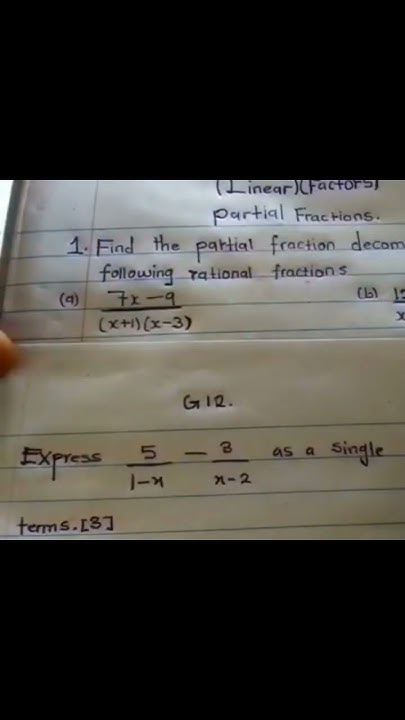 (Linear)(Factors)
Partial Fractions.
1. Find the partial fraction decom
following rational fractions
(a) 7x-9 / (x+1)(x-3) (b)
G12.
Express 5 / 1-x - 3 / x-2 as a single
terms.[3]